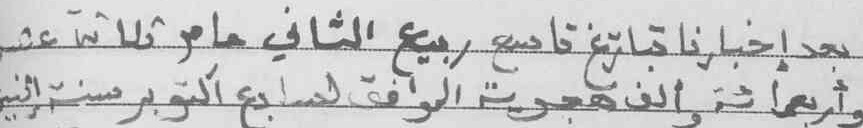 بعد إخبارنا بتاريخ تاسع ربيع الثاني عام ثلاثة عشر
وأربعمائة وألف هجرية الموافق لسابع أكتوبر سنة إثنين